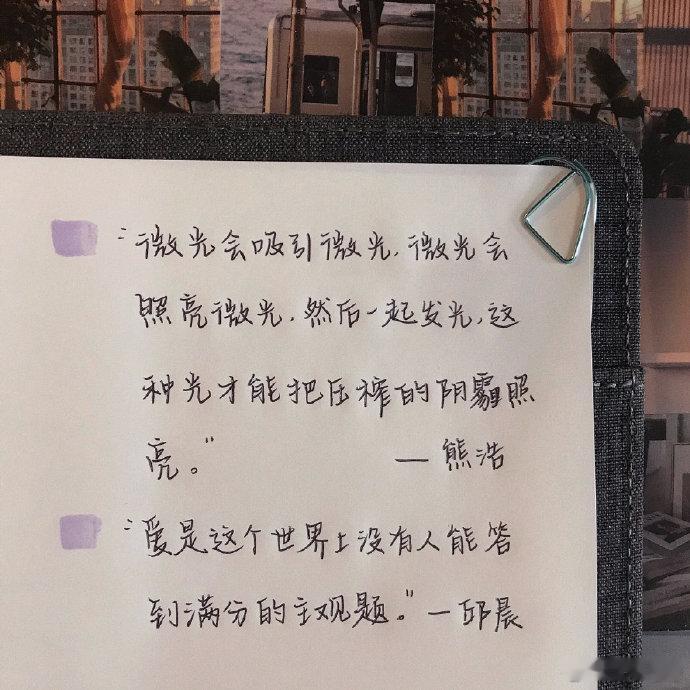 “微光会吸引微光,微光会
照亮微光,然后一起发光,这
种光才能把压榨的阴霾照
亮。” — 熊浩
“爱是这个世界上没有人能答
到满分的主观题。” — 邱晨